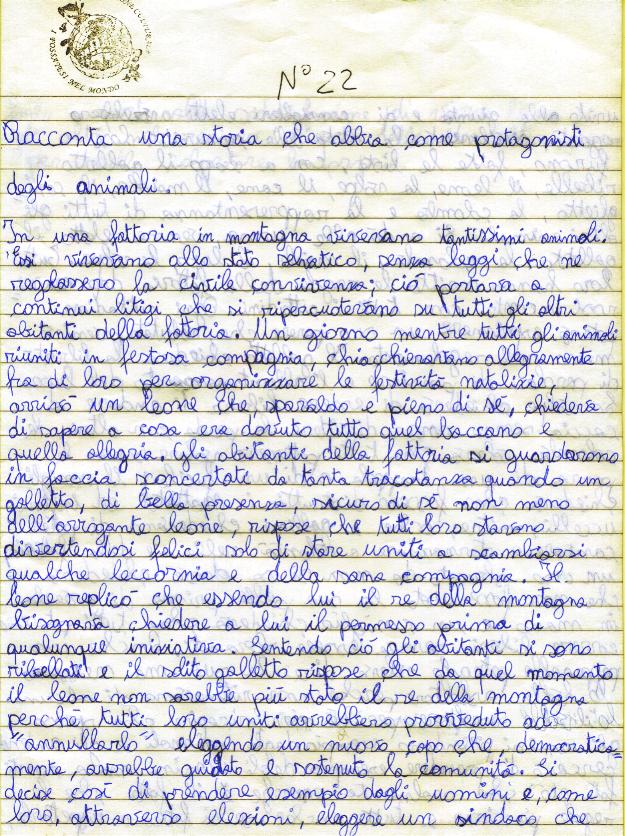 I FOSSATESI NEL MONDO
N° 22
Racconta una storia che abbia come protagonisti
degli animali.
In una fattoria in montagna vivevano tantissimi animali.
Essi vivevano allo stato selvatico, senza leggi che ne
regolassero la civile convivenza; ciò portava a
continui litigi che si ripercuotevano su tutti gli altri
abitanti della fattoria. Un giorno mentre tutti gli animali
riuniti in festosa compagnia, chiacchieravano allegramente
fra di loro per organizzare le festività natalizie,
arrivò un leone che, spavaldo e pieno di sé, chiedeva
di sapere a cosa era dovuto tutto quel baccano e
quella allegria. Gli abitanti della fattoria si guardarono
in faccia sconcertati da tanta tracotanza quando un
galletto, di bella presenza, sicuro di sé non meno
dell'arrogante leone, rispose che tutti loro stavano
divertendosi felici solo di stare uniti a scambiarsi
qualche leccornia e della sana compagnia. Il
leone replicò che essendo lui il re della montagna
bisognava chiedere a lui il permesso prima di
qualunque iniziativa. Sentendo ciò gli abitanti si sono
ribellati e il solito galletto rispose che da quel momento
il leone non sarebbe più stato il re della montagna
perché tutti loro uniti avrebbero provveduto ad
"annullarlo" eleggendo un nuovo capo che, democratica=
mente, avrebbe guidato e sostenuto la comunità. Si
decise così di prendere esempio dagli uomini e, come
loro, attraverso elezioni, eleggere un sindaco che